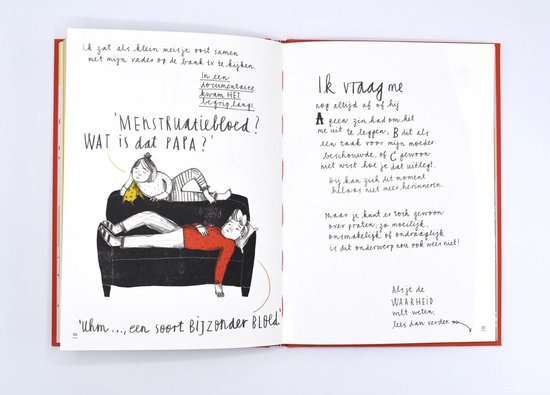 Ik zat als klein meisje ooit samen
met mijn vader op de bank tv te kijken.
In een
documentaire
kwam HET
begrip langs!
'MENSTRUATIEBLOED?
WAT is dat PAPA?'
'Uhm..., een soort BIJZONDER BLOED'
56
Ik vraag me
nog altijd af of hij
A geen zin had om het
me uit te leggen, B dit als
een taak voor mijn moeder
beschouwde, of C gewoon
niet wist hoe je dat uitlegt.
Hij kan zich dit moment
helaas niet meer herinneren.
Maar je kunt er toch gewoon
over praten, zo moeilijk,
onsmakelijk of ondraaglijk
is dit onderwerp nou ook weer niet!
Als je de
WAARHEID
wilt weten,
lees dan verder
57